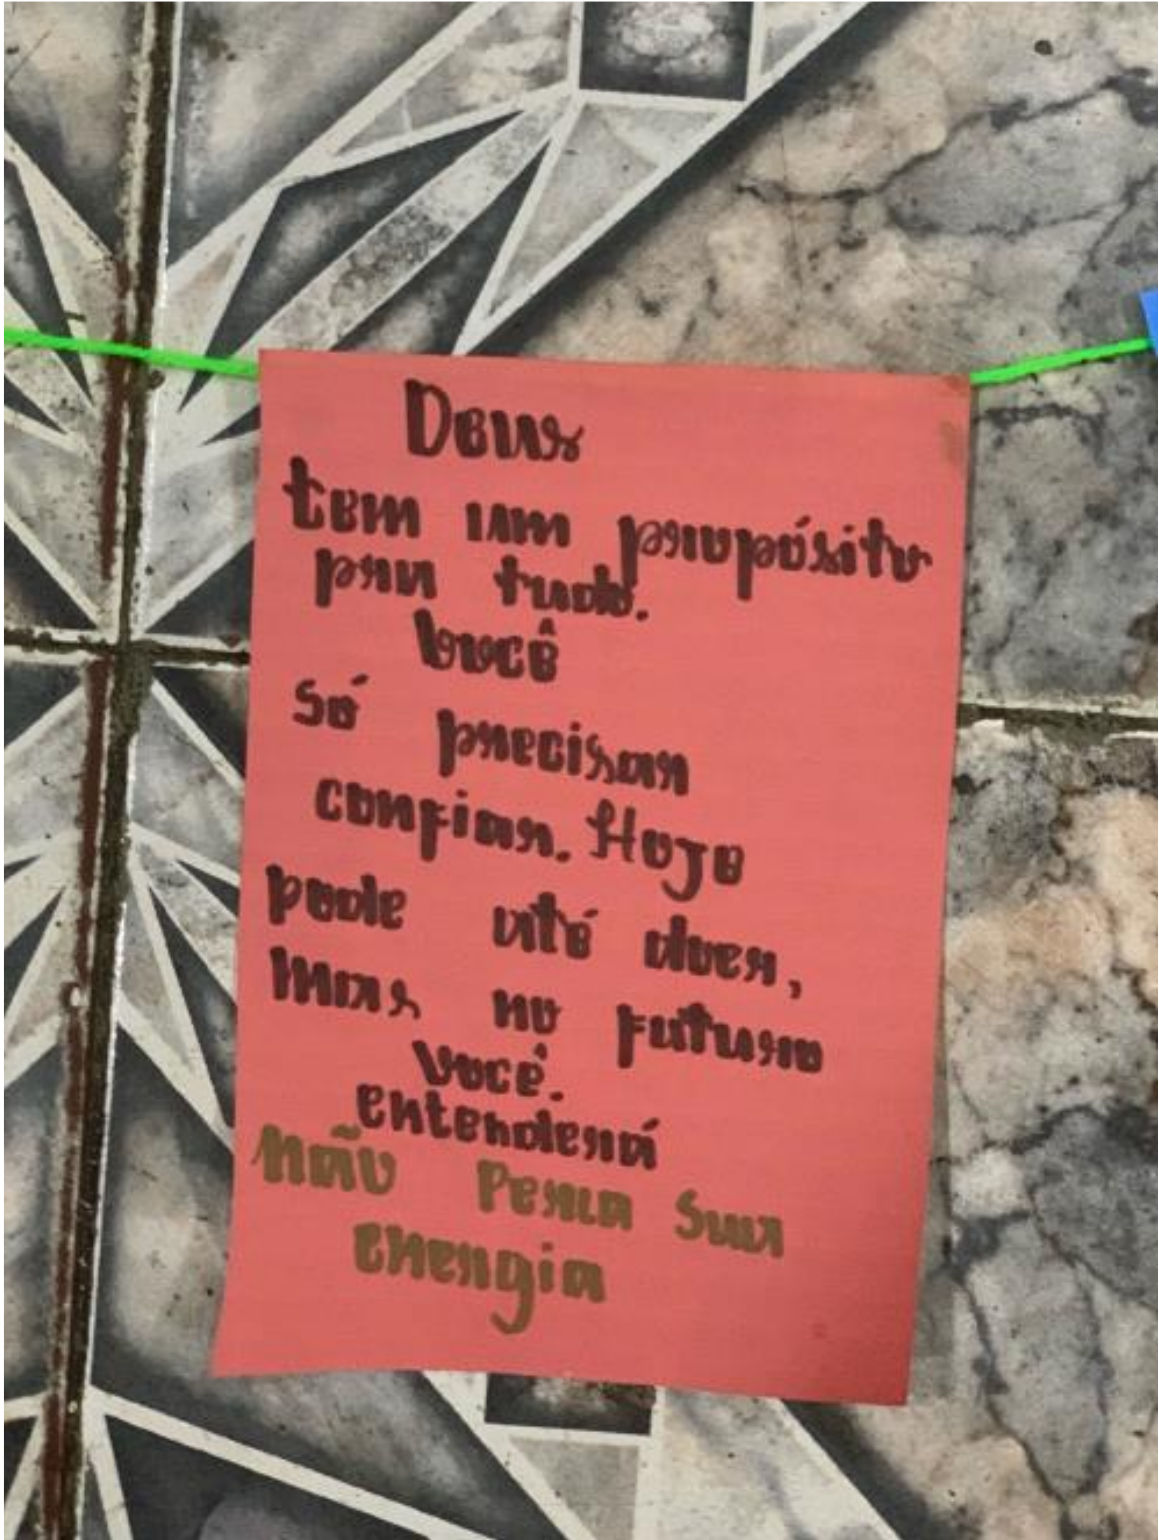 Deus
tem um propósito
pra tudo.
Você
só precisar
confiar. Hoje
pode até doer,
mas no futuro
você.
entenderá
não Perca Sua
energia